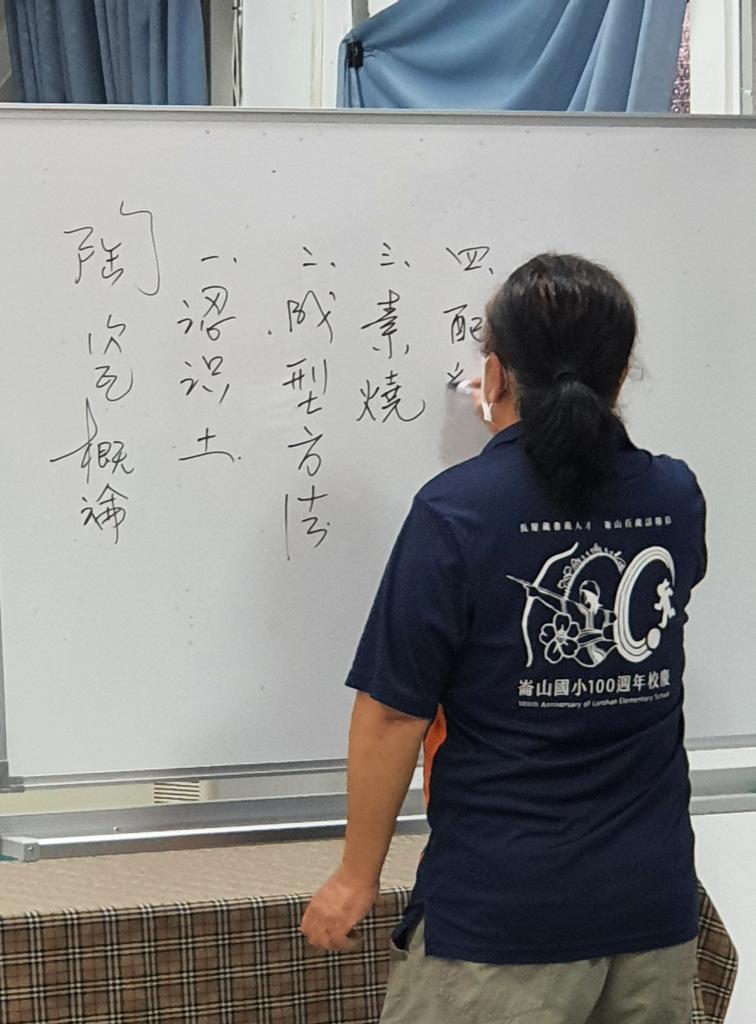 陶瓷概論
一、認識土
二、成型方法
三、素燒
四、配
崙山國小100週年校慶
100th Anniversary of Lunshan Elementary School